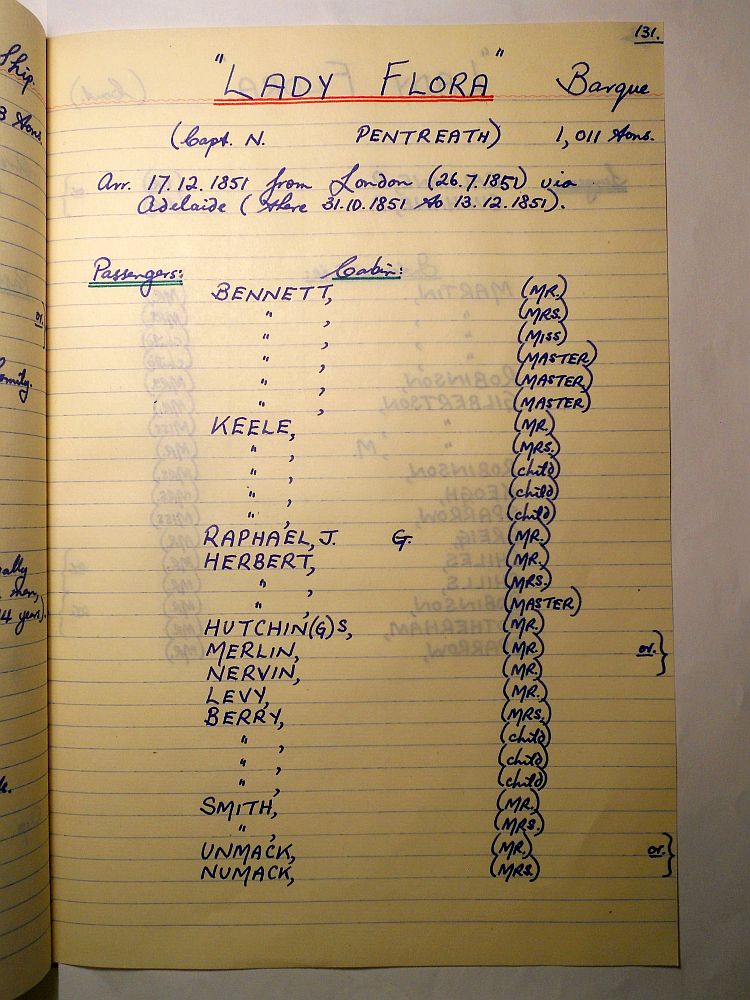 131.
"LADY FLORA" Barque
(Capt. N. PENTREATH) 1,011 tons.
Arr. 17.12.1851 from London (26.7.1851) via
Adelaide (there 31.10.1851 to 13.12.1851).
Passengers: Cabin:
BENNETT, (MR.)
" , (MRS.)
" , (MISS)
" , (MASTER)
" , (MASTER)
" , (MASTER)
KEELE, (MR.)
" , (MRS.)
" , (child)
" , (child)
" , (child)
RAPHAEL, J. G. (MR.)
HERBERT, (MR.)
" , (MRS.)
" , (MASTER)
HUTCHIN(G)S, (MR.)
MERLIN, (MR.) or.}
NERVIN, (MR.)
LEVY, (MR.)
BERRY, (MRS.)
" , (child)
" , (child)
" , (child)
SMITH, (MR.)
" , (MRS.)
UNMACK, (MR.) or.}
NUMACK, (MRS.)
Ship.
3 tons.
or.}
family.
4 years).